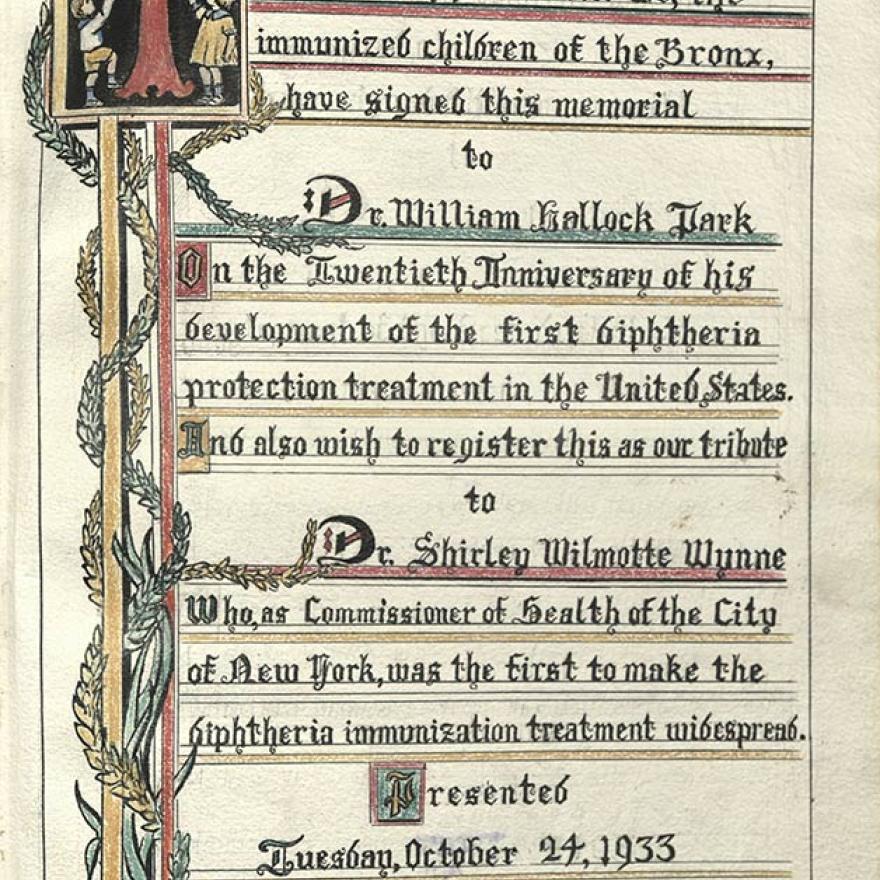 the
immunized children of the Bronx,
have signed this memorial
to
Dr. William Hallock Park
On the Twentieth Anniversary of his
development of the first diphtheria
protection treatment in the United States.
And also wish to register this as our tribute
to
Dr. Shirley Wilmotte Wynne
Who, as Commissioner of Health of the City
of New York, was the first to make the
diphtheria immunization treatment widespread.
Presented
Tuesday, October 24, 1933